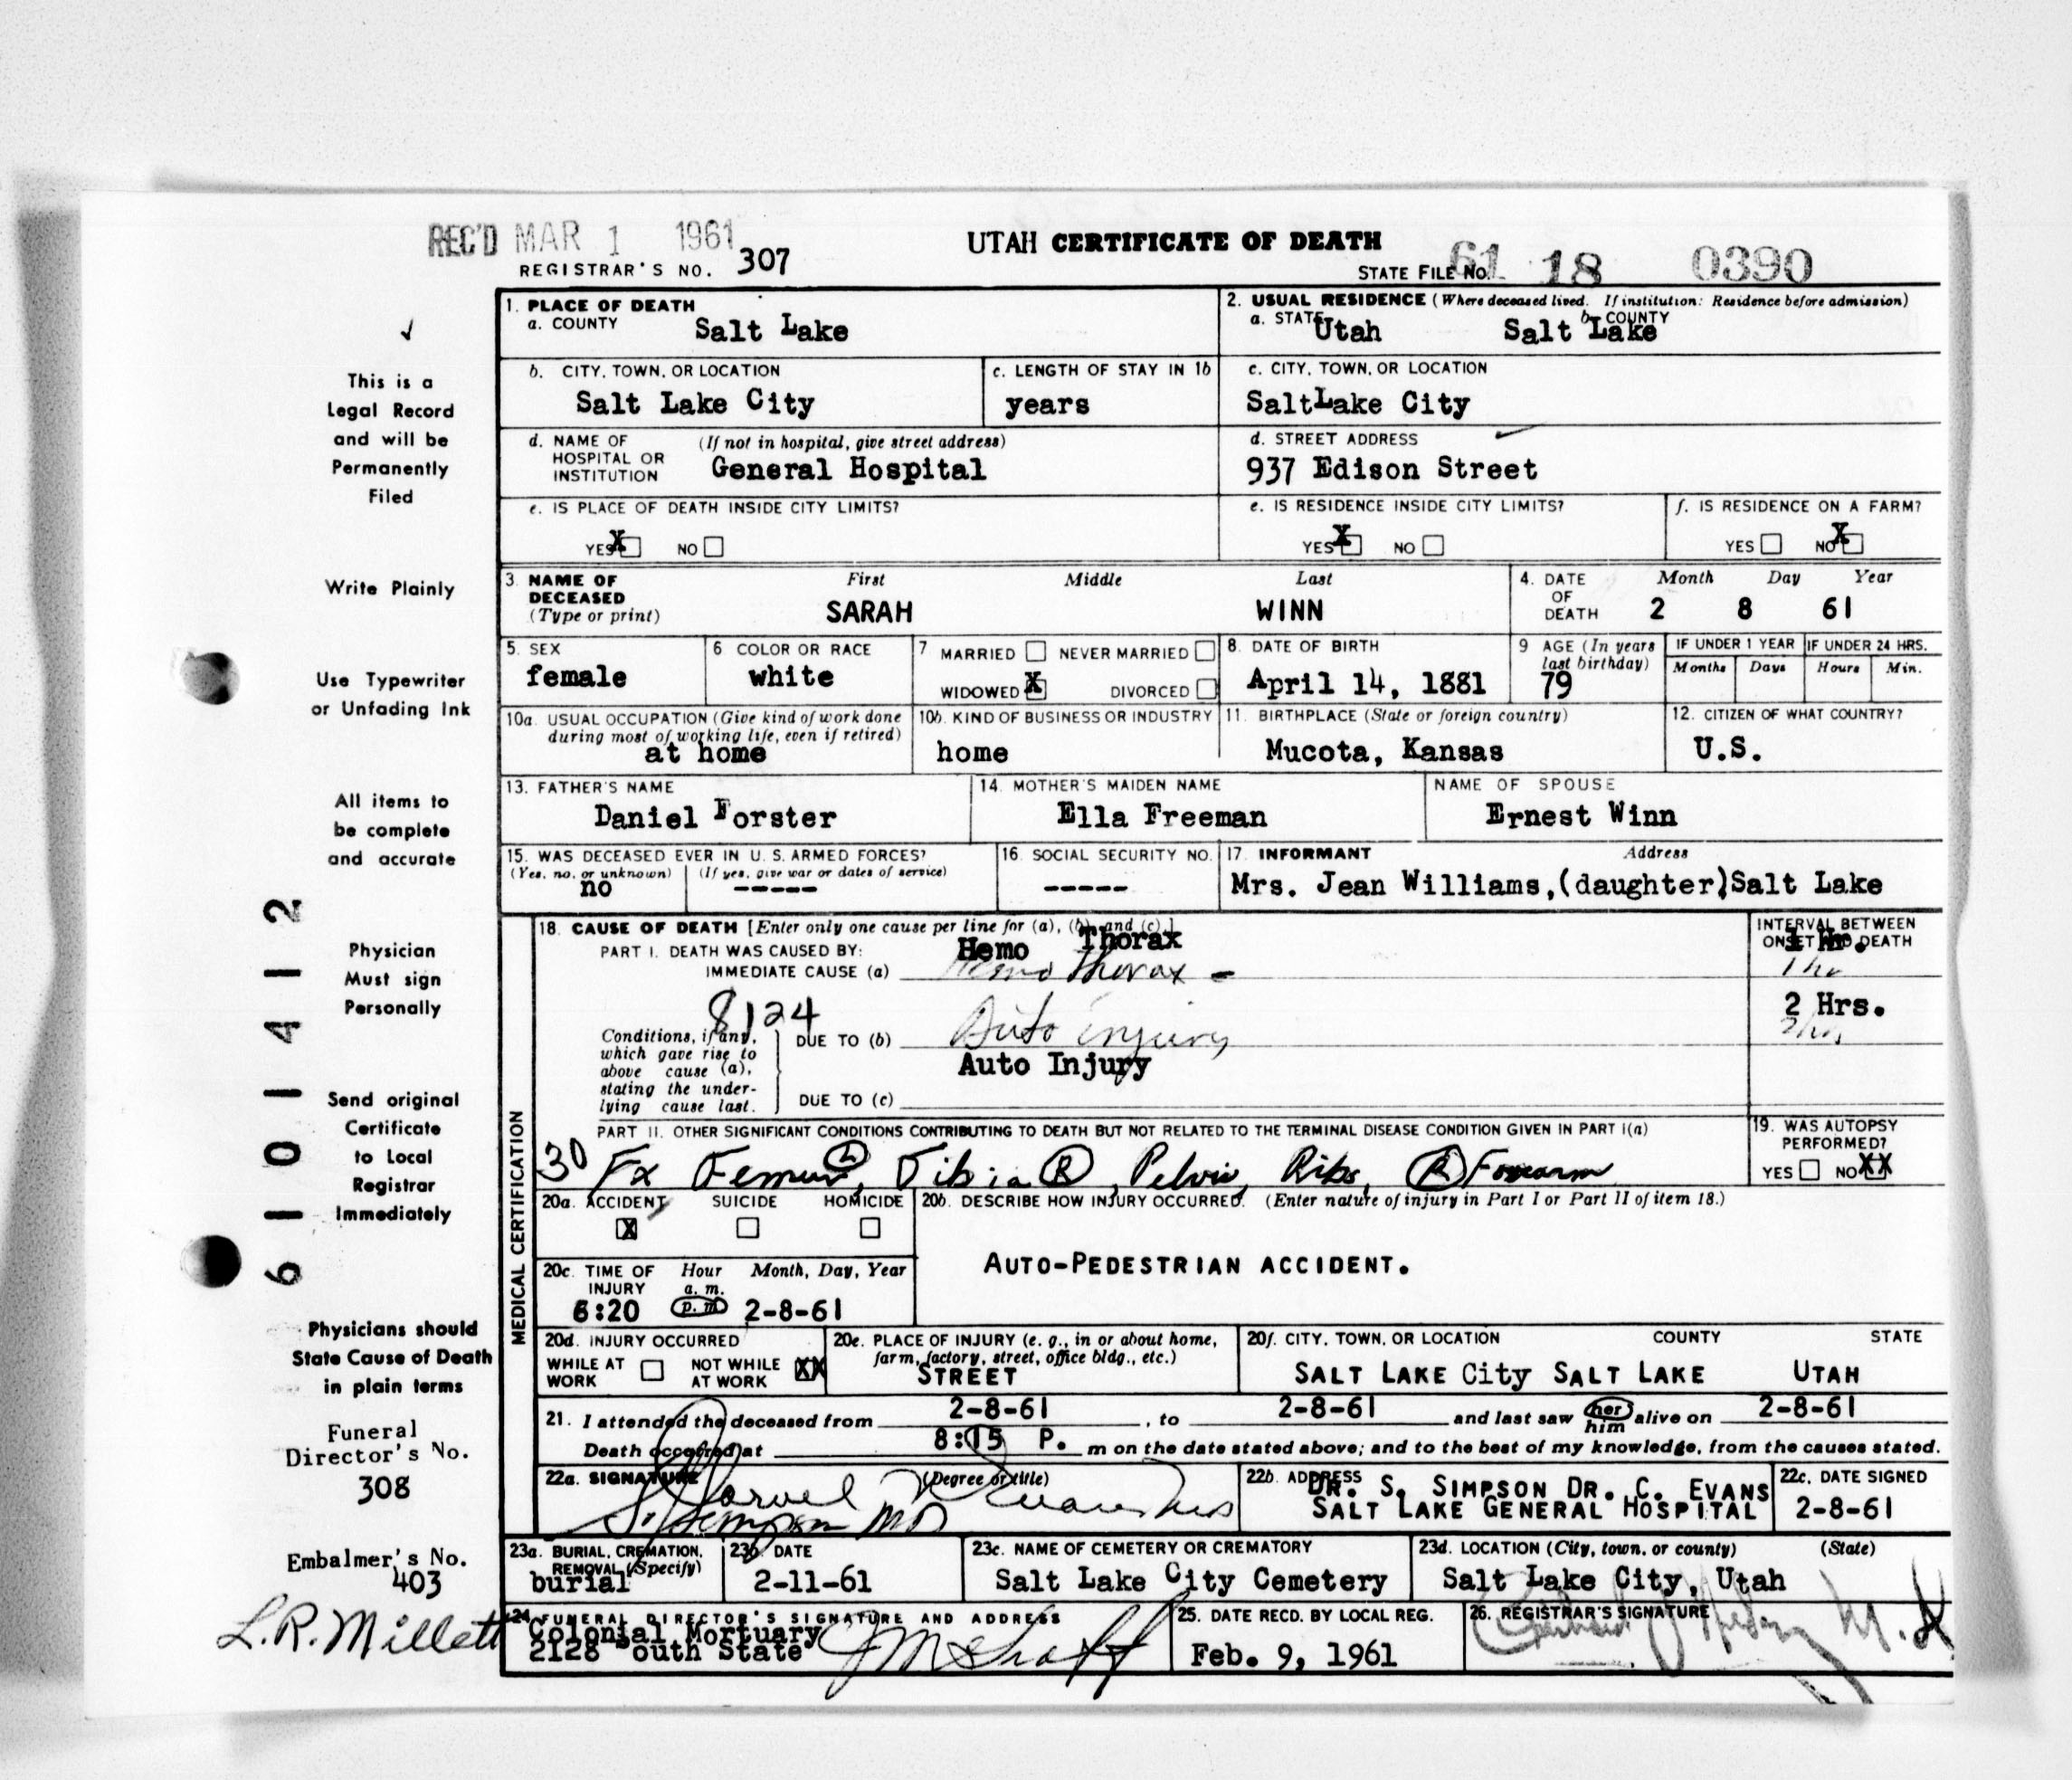 REC'D MAR 1 1961
REGISTRAR'S NO. 307
UTAH CERTIFICATE OF DEATH
STATE FILE NO. 61 18 0390
1. PLACE OF DEATH
a. COUNTY Salt Lake
2. USUAL RESIDENCE (Where deceased lived. If institution: Residence before admission)
a. STATE Utah b. COUNTY Salt Lake
b. CITY, TOWN, OR LOCATION Salt Lake City
c. LENGTH OF STAY IN 1b years
c. CITY, TOWN, OR LOCATION SaltLake City
d. NAME OF HOSPITAL OR INSTITUTION (If not in hospital, give street address) General Hospital
d. STREET ADDRESS 937 Edison Street
e. IS PLACE OF DEATH INSIDE CITY LIMITS?
YES X NO
e. IS RESIDENCE INSIDE CITY LIMITS?
YES X NO
f. IS RESIDENCE ON A FARM?
YES NO X
3. NAME OF DECEASED (Type or print)
First Middle Last
SARAH WINN
4. DATE OF DEATH
Month Day Year
2 8 61
5. SEX female
6 COLOR OR RACE white
7 MARRIED NEVER MARRIED
WIDOWED X DIVORCED
8. DATE OF BIRTH April 14, 1881
9 AGE (In years last birthday) 79
IF UNDER 1 YEAR IF UNDER 24 HRS.
Months Days Hours Min.
10a. USUAL OCCUPATION (Give kind of work done during most of working life, even if retired) at home
10b. KIND OF BUSINESS OR INDUSTRY home
11. BIRTHPLACE (State or foreign country) Mucota, Kansas
12. CITIZEN OF WHAT COUNTRY? U.S.
13. FATHER'S NAME Daniel Forster
14. MOTHER'S MAIDEN NAME Ella Freeman
NAME OF SPOUSE Ernest Winn
15. WAS DECEASED EVER IN U. S. ARMED FORCES?
(Yes, no, or unknown) (If yes, give war or dates of service)
no -----
16. SOCIAL SECURITY NO. -----
17. INFORMANT Address
Mrs. Jean Williams,(daughter)Salt Lake
MEDICAL CERTIFICATION
18. CAUSE OF DEATH [Enter only one cause per line for (a), (b), and (c).]
PART I. DEATH WAS CAUSED BY: Hemo Thorax
IMMEDIATE CAUSE (a) Hemo Thorax -
INTERVAL BETWEEN ONSET AND DEATH
1 Hr.
1 hr
8124
2 Hrs.
2 hrs
Conditions, if any, which gave rise to above cause (a), stating the underlying cause last.
DUE TO (b) Auto injury
Auto Injury
DUE TO (c)
PART II. OTHER SIGNIFICANT CONDITIONS CONTRIBUTING TO DEATH BUT NOT RELATED TO THE TERMINAL DISEASE CONDITION GIVEN IN PART I(a)
30 Fx Femur L, Tibia R, Pelvis, Ribs, R Forearm
19. WAS AUTOPSY PERFORMED?
YES NO XX
20a. ACCIDENT SUICIDE HOMICIDE
X
20b. DESCRIBE HOW INJURY OCCURRED. (Enter nature of injury in Part I or Part II of item 18.)
AUTO-PEDESTRIAN ACCIDENT.
20c. TIME OF INJURY Hour Month, Day, Year
a. m.
6:20 p. m 2-8-61
20d. INJURY OCCURRED
WHILE AT WORK NOT WHILE AT WORK XX
20e. PLACE OF INJURY (e. g., in or about home, farm, factory, street, office bldg., etc.)
STREET
20f. CITY, TOWN, OR LOCATION COUNTY STATE
SALT LAKE City SALT LAKE UTAH
21. I attended the deceased from 2-8-61, to 2-8-61 and last saw her him alive on 2-8-61
Death occurred at 8:15 P. m on the date stated above; and to the best of my knowledge, from the causes stated.
22a. SIGNATURE (Degree or title)
S. Simpson MD
22b. ADDRESS
DR. S. SIMPSON DR. C. EVANS
SALT LAKE GENERAL HOSPITAL
22c. DATE SIGNED
2-8-61
23a. BURIAL, CREMATION, REMOVAL (Specify) burial
23b. DATE 2-11-61
23c. NAME OF CEMETERY OR CREMATORY Salt Lake City Cemetery
23d. LOCATION (City, town, or county) (State) Salt Lake City, Utah
24. FUNERAL DIRECTOR'S SIGNATURE AND ADDRESS
Colonial Mortuary
2128 South State
25. DATE RECD. BY LOCAL REG.
Feb. 9, 1961
26. REGISTRAR'S SIGNATURE
This is a
Legal Record
and will be
Permanently
Filed
Write Plainly
Use Typewriter
or Unfading Ink
All items to
be complete
and accurate
Physician
Must sign
Personally
Send original
Certificate
to Local
Registrar
Immediately
Physicians should
State Cause of Death
in plain terms
Funeral
Director's No.
308
Embalmer's No.
403
L.R. Millett
61014112